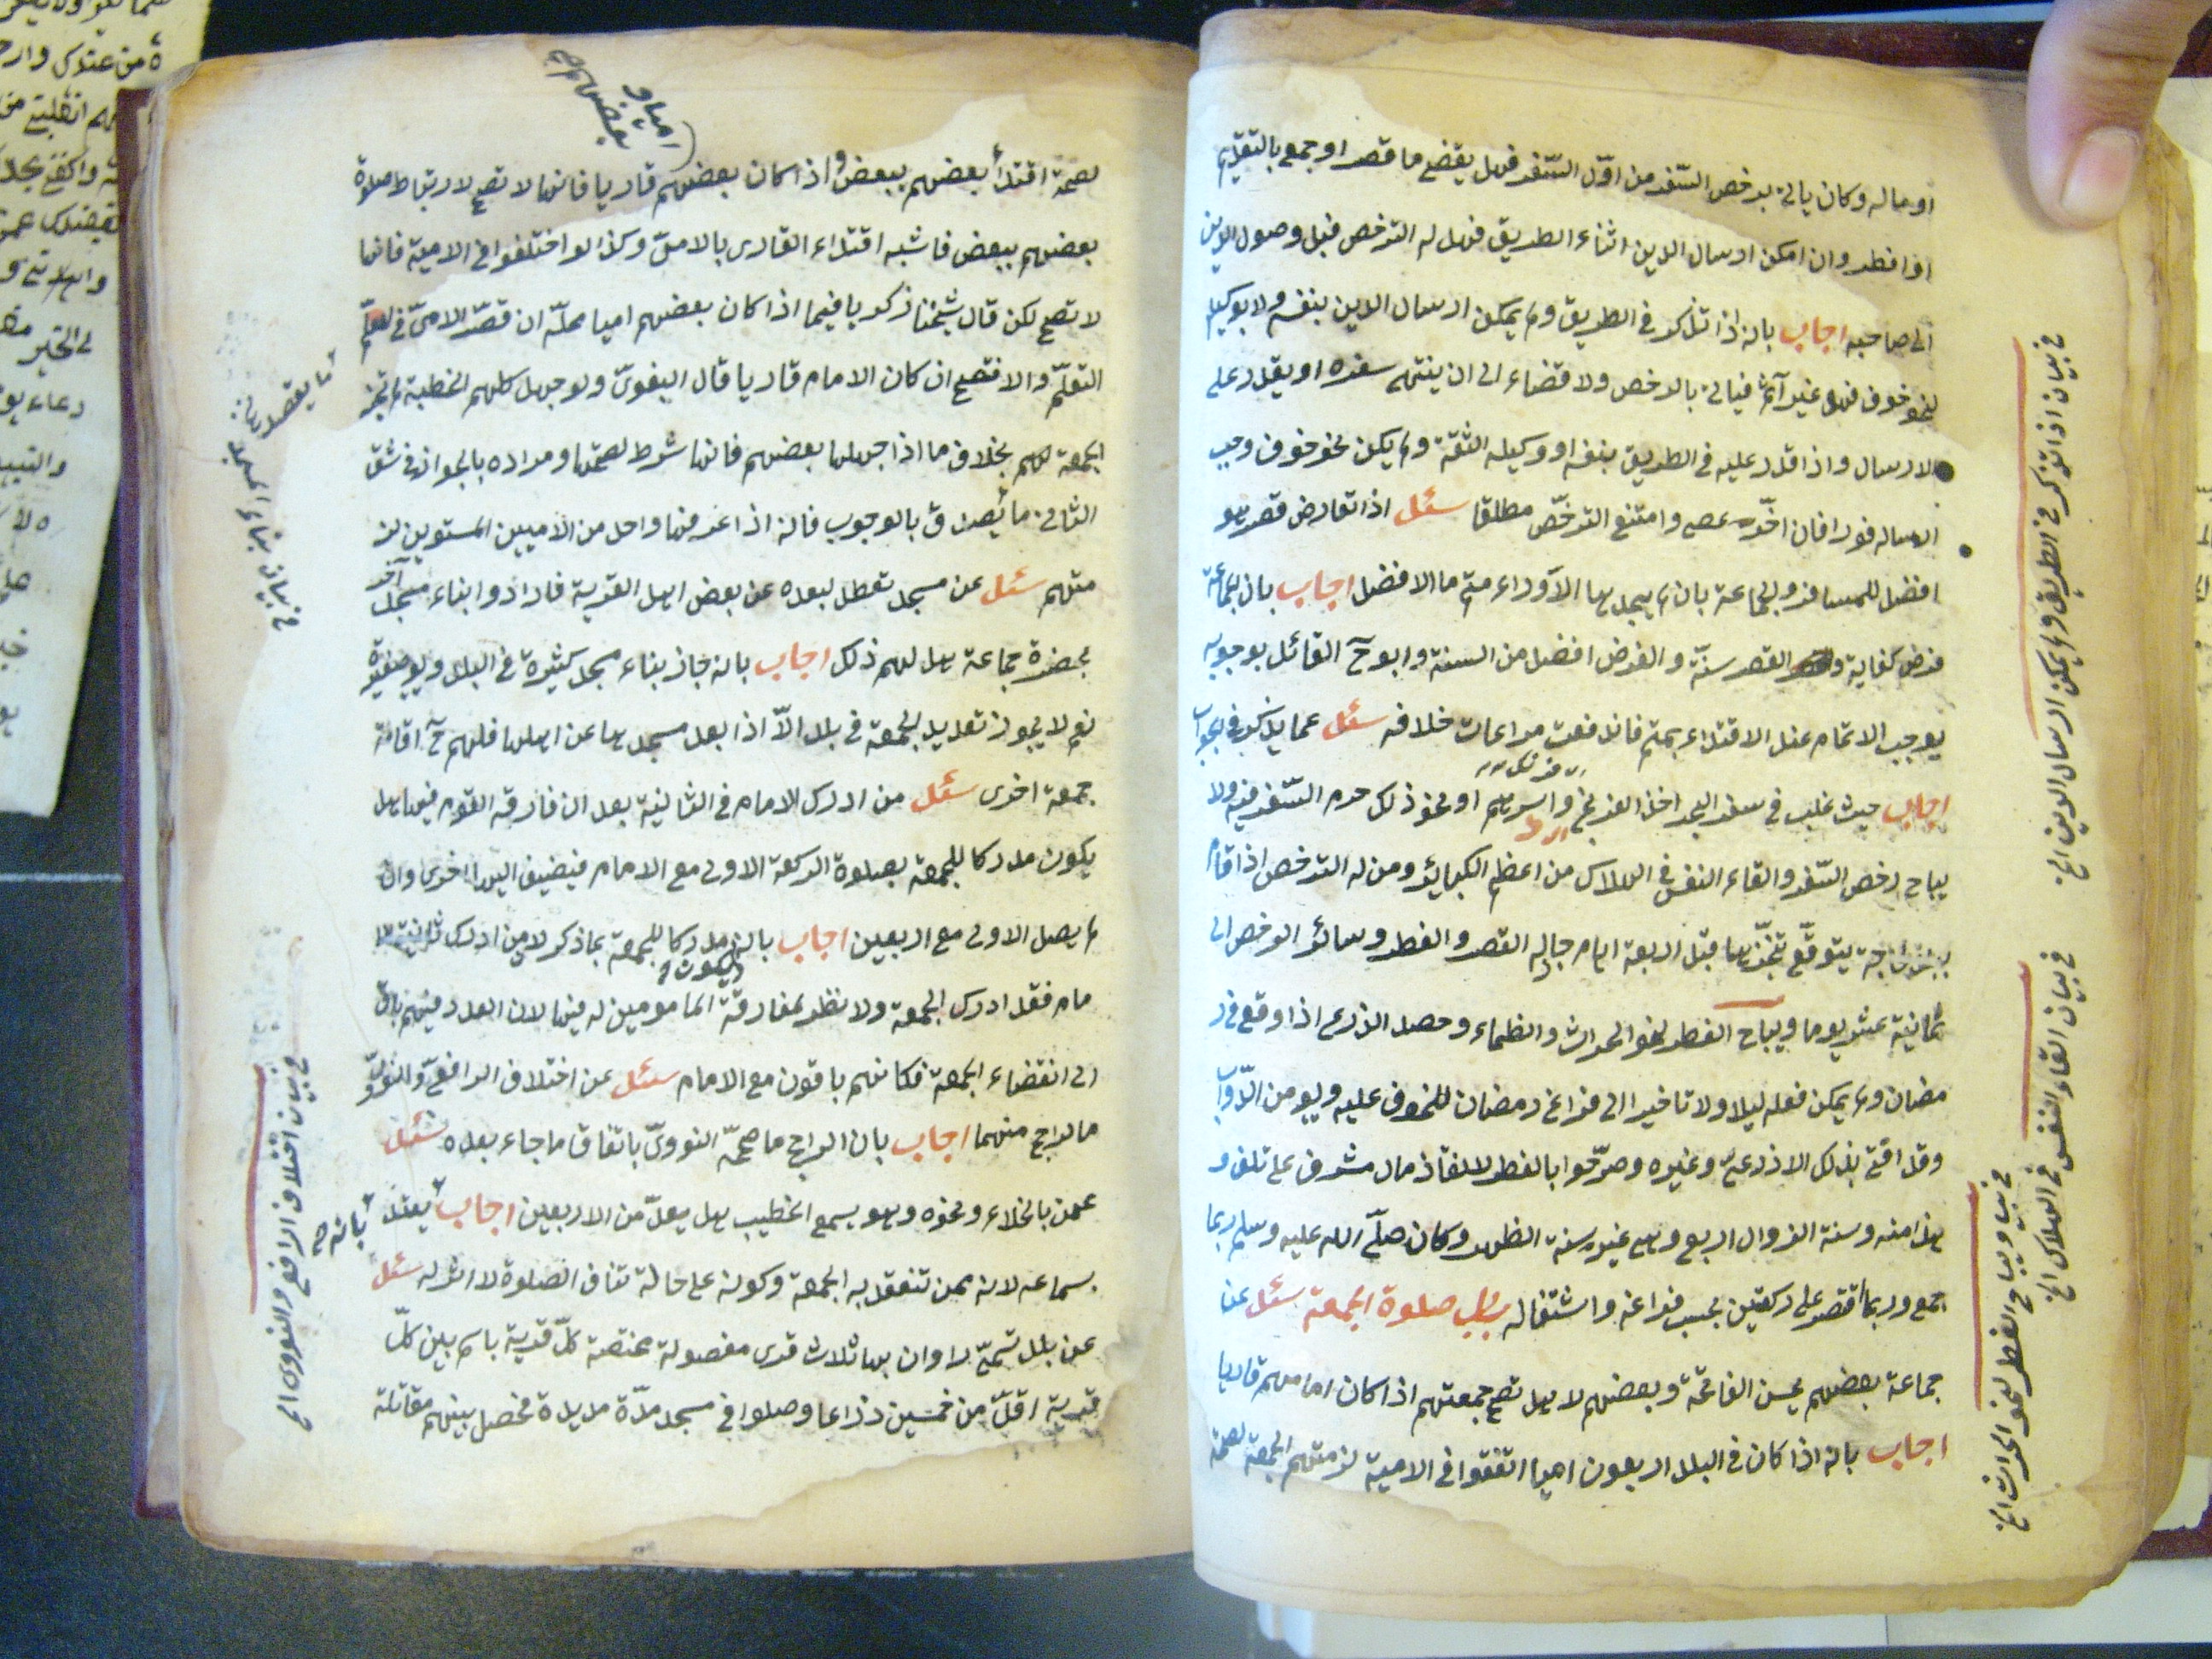 او ماله وكان ياتي برخص السّفر من اوّل السّفر فهل يقضي ما قصر او جمع بالتقديم
او افطر وان امكن ارسال الدين اثناء الطريق فهل له الترخص قبل وصول الدين
الى صاحبه اجاب بانه اذا تذكر في الطريق ولم يمكن ارسال الدين بنفسه ولا بوكيله
لنحو خوف فهو غير آثم فياتي بالرخص ولا قضاء الى ان ينتهي سفره او يقدر على
الارسال واذا قدر عليه في الطريق بنفسه او وكيله الثقة ولم يكن نحو خوف وجب
ارساله فورا فان اخّره عصى وامتنع الترخّص مطلقا سئل اذا تعارض قصر هو
افضل للمسافر والجماعة بان لم يجد بها الا وراء متم ما الافضل اجاب بان الجماعة
فرض كفاية والقصر سنّة والفرض افضل من السنة وابو ح القائل بوجوبه
يوجب الاتمام عند الاقتداء بمتم فاندفعت مراعات خلافه سئل عما يذكر في الجواب
اجاب حيث غلب في سفر البحر اخذ الفرنج واسرهم او نحو ذلك حرم السّفر فيه ولا
يباح رخص السّفر والقاء النفس في الهلاك من اعظم الكبائر ومن له الترخص اذا اقام
يتوقّع تنجّزها قبل اربعة ايام جاز له القصر والفطر وسائر الرخص الى
ثمانية عشر يوما ويباح الفطر لنحو الحراث والظماء وحصد الزرع اذا وقع في ر
مضان ولم يمكن فعله ليلا ولا تاخيرا الى فراغ رمضان للخوف عليه ولو من الدّوابّ
وقد افتى بذلك الاذرعيّ وغيره وصرّحوا بالفطر لانقاذ مال مشرف على تلف و
هذا منه وسنة الزوال اربع وهي غير سنة الظهر وكان صلّى الله عليه وسلم ربما
جمع وربما اقتصر على ركعتين بحسب فراغه واشتغاله باب صلوة الجمعة سئل عن
جماعة بعضهم يحسن الفاتحة وبعضهم لا هل تصح جمعتهم اذا كان امامهم قاريا
اجاب بانه اذا كان في البلد اربعون اميا اتفقوا في الامية لزمتهم الجمعة لصحة
في بيان اذا تذكر في الطريق ولم يمكن ارسال الدين الخ
في بيان القاء النفس في الهلاك الخ
في بيان ويباح الفطر لنحو الحراث الخ
اميا و
بعضهم صح
لصحة اقتدأ بعضهم ببعض واذا كان بعضهم قاريا فانها لا تصح لارتباط صلوة
بعضهم ببعض فاشبه اقتداء القارى بالامّيّ وكذا لو اختلفوا في الامية فانها
لا تصح لكن قال شيخنا زكريا فيما اذا كان بعضهم اميا محلّه ان قصّر الامىّ في
التعلّم والا فتصح ان كان الامام قاريا قال البغويّ ولو جهل كلهم الخطبة لم تجز
الجمعة لهم بخلاف ما اذا جهلها بعضهم فانها شرط لصحتها ومراده بالجواز في شق
الثاني ما يصدق بالوجوب فانه اذا عرفها واحد من الاميين المستوين لز
متهم سئل عن مسجد تعطل لبعده عن بعض اهل القرية فارادوا ابناء مسجد آخر
بحضرة جماعة هل لهم ذلك اجاب بانه جاز بناء مسجد كثيرة في البلد ولو صغيرة
نعم لا يجوز تعديد الجمعة في بلد الاّ اذا بعد مسجدها عن اهلها فلهم ح اقامة
جمعة اخرى سئل من ادرك الامام في الثانية بعد ان فارقه القوم فيها هل
يكون مدركا للجمعة بصلوة الركعة الاولى مع الامام فيضيف اليها اخرى وان
لم يصل الاولى مع اربعين اجاب بانه مدركا للجمعة بما ذكر لا من ادرك
يكون
مام فقد ادرك الجمعة ولا نظر لمفارقة المامومين له فيها لان العدد فيهم باق
الى انقضاء الجمعة فكانهم باقون مع الامام سئل عن اختلاف الرافعيّ والنوويّ
ما الراجح منهما اجاب بان الراجح ما صحّه النوويّ باتفاق ما جاء بعده سئل
عمن بالخلاء ونحوه وهو يسمع الخطيب هل يعدّ من الاربعين اجاب يعتد
بانه صح
بسماعه لانه ممن تنعقد به الجمعة وكونه على حالة تنافى الصلوة لا اثر له سئل
عن بلد تسمّى راوان بها ثلاث قرى مفصولة مختصة كلّ قرية باسم بين كلّ
قرية اقلّ من خمسين ذراعا وصلوا في مسجد مدّة مديدة فحصل بينهم مقاتلة
في بيان بناء مسجد
في بيان اختلاف الرافعي والنووي الخ